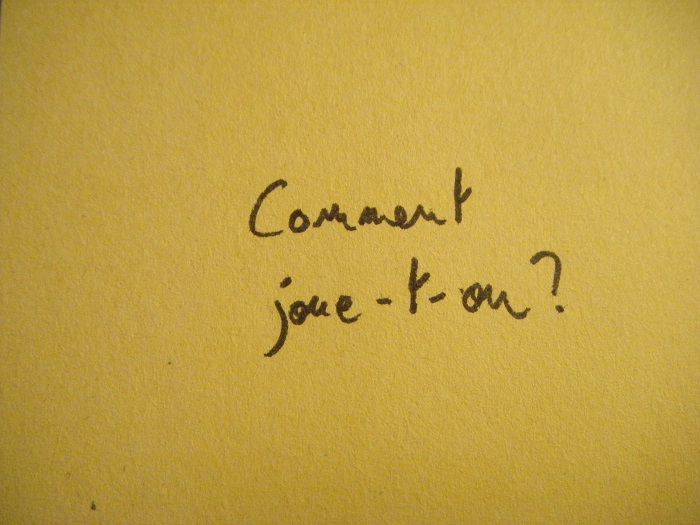 Comment
joue-t-on?